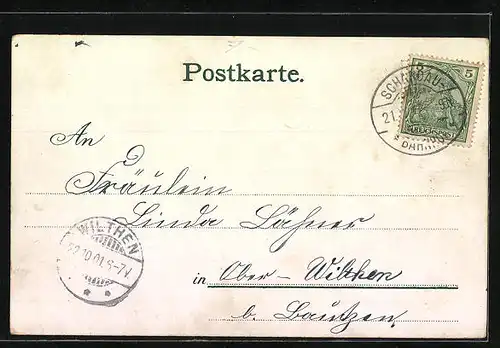 Postkarte.
5
SCHANDAU
21.
BAHNHOF
An
Fräulein
Linda Löhner
in Ober-Wilthen
b. Bautzen.
WILTHEN
22 10 01. 6-7V.